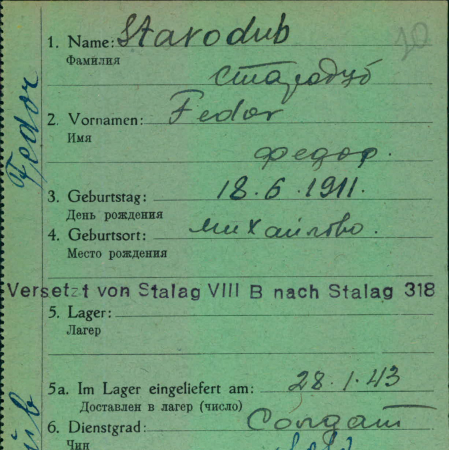 20
1. Name: Starodub
Фамилия
Стародуб
2. Vornamen: Fedor
Имя
Федор.
3. Geburtstag: 18.6.1911.
День рождения
4. Geburtsort: Михайлово.
Место рождения
Versetzt von Stalag VIII B nach Stalag 318
5. Lager:
Лагерь
5a. Im Lager eingeliefert am: 28.1.43
Доставлен в лагерь (число)
6. Dienstgrad: Солдат
Чин
Fedor